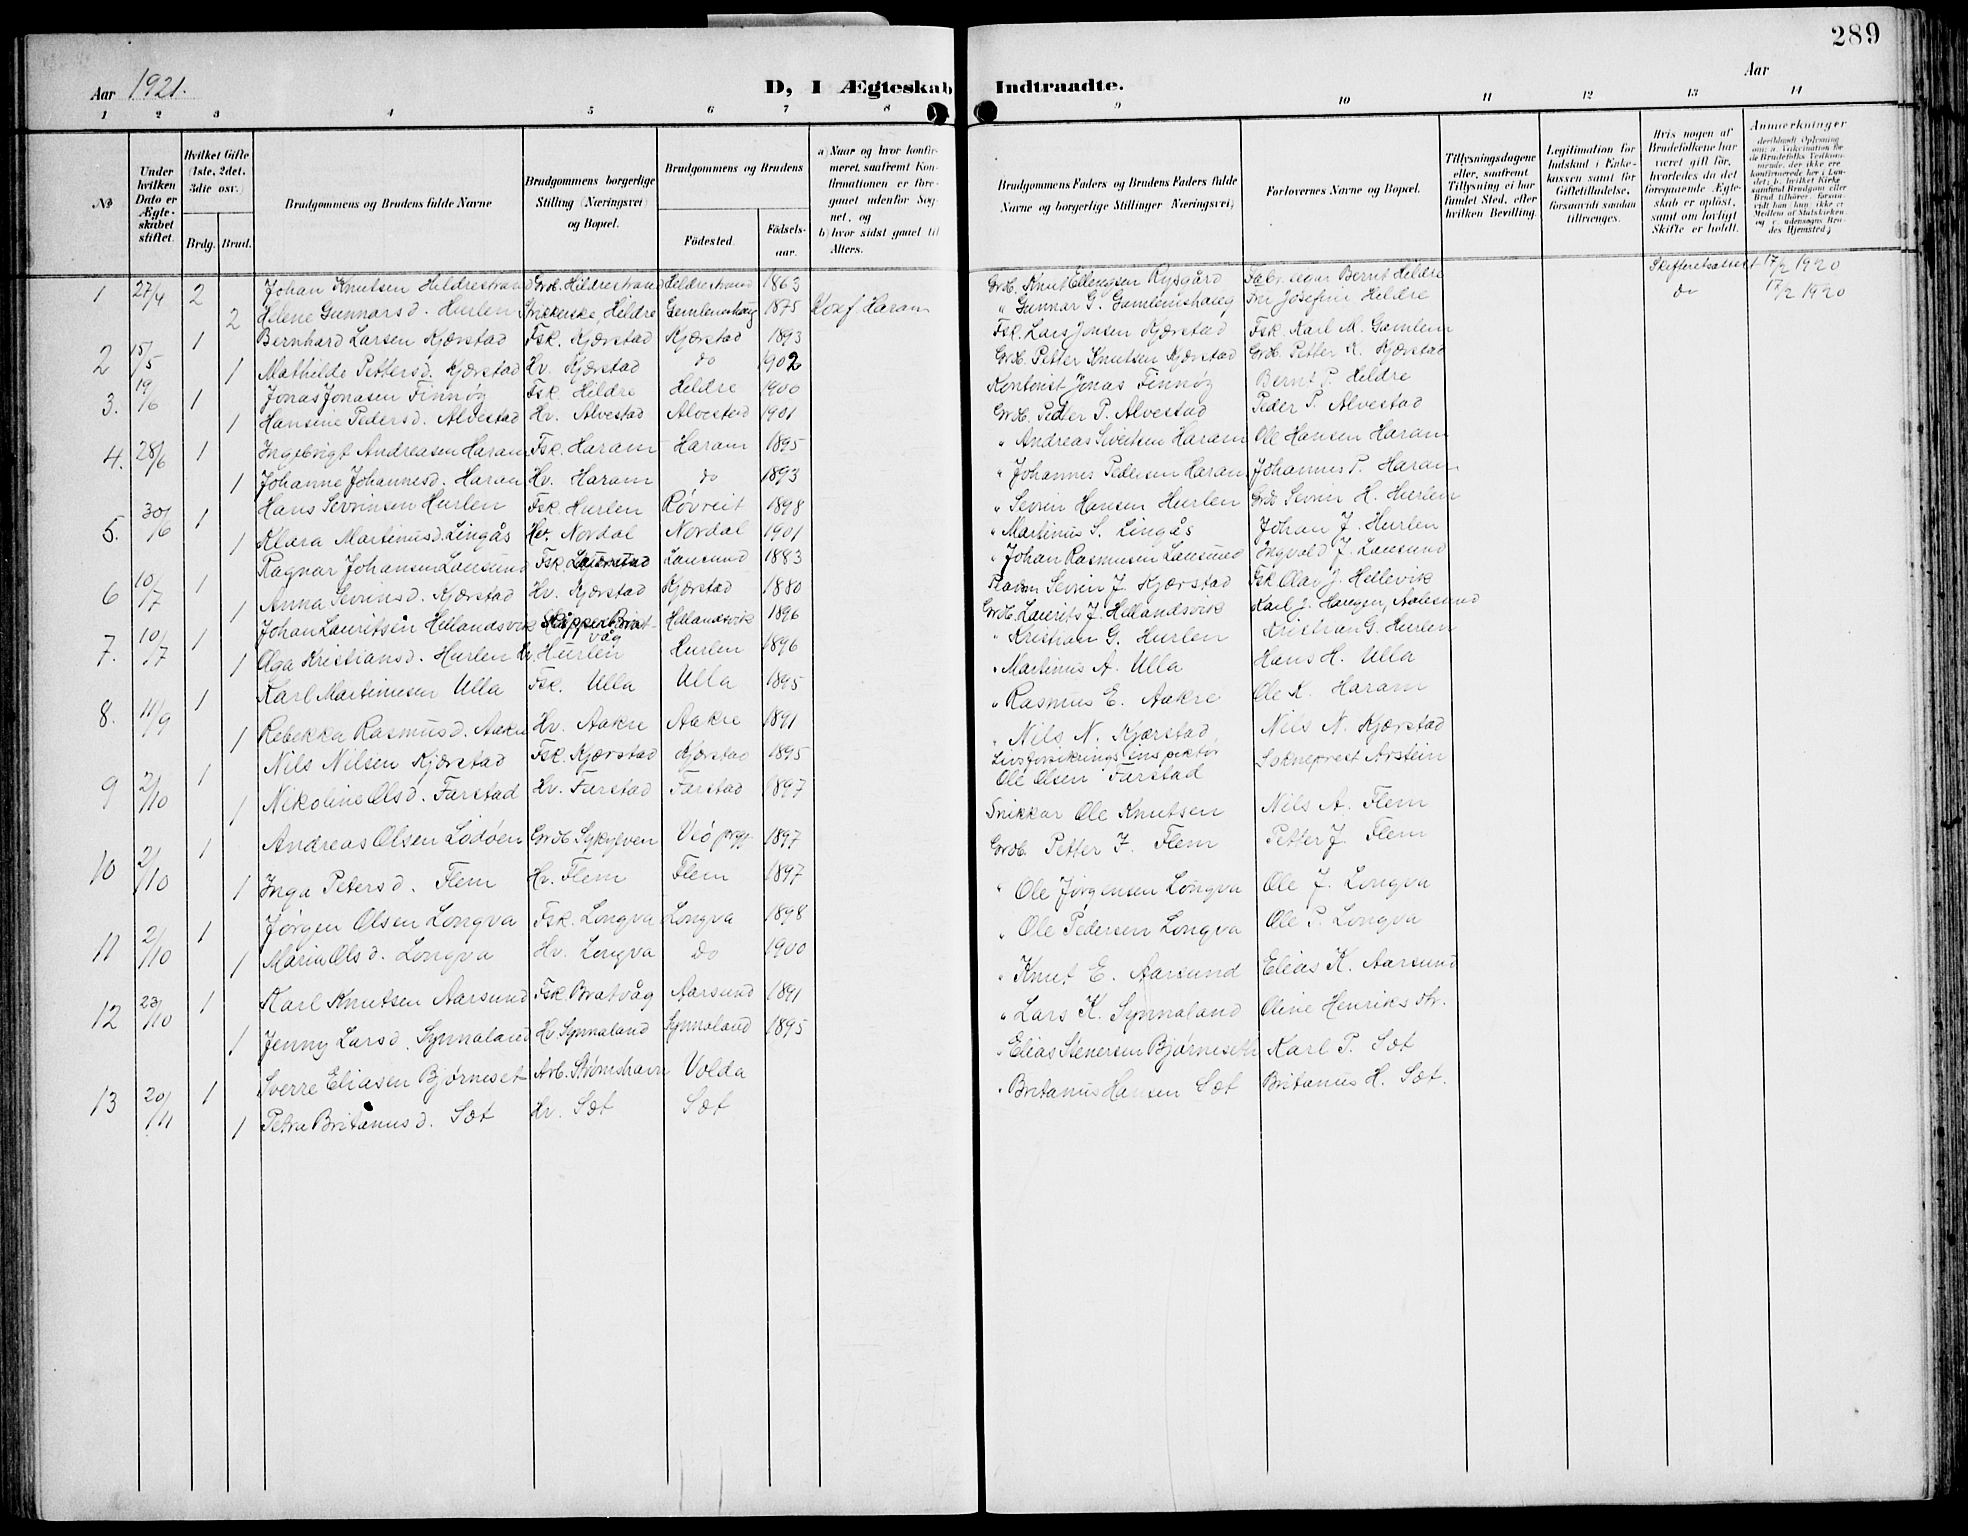 289
Aar 1921.
D, I Ægteskab Indtraadte.
Aar
1 2 3 4 5 6 7 8 9 10 11 12 13 14
№
Under hvilken Dato er Ægteskabet stiftet.
Hvilket Gifte (1ste, 2det, 3die osv.)
Brdg. Brud.
Brudgommens og Brudens fulde Navne
Brudgommens borgerlige Stilling (Næringsvei) og Bopæl.
Brudgommens og Brudens
Födested. Födselsaar.
a) Naar og hvor konfirmeret, saafremt Konfirmationen er foregaaet udenfor Sognet, og
b) hvor sidst gaaet til Alters.
Brudgommens Faders og Brudens Faders fulde Navne og borgerlige Stillinger Næringsvei)
Forlovernes Navne og Bopæl.
Tillysningsdagene eller, saafremt Tillysning ei har fundet Sted, efter hvilken Bevilling.
Legitimation for Indskud i Enkekassen samt for Giftetilladelse, forsaavidt saadan tiltrænges.
Hvis nogen af Brudefolkene har været gift för, hvorledes da det foregaaende Ægteskab er oplöst, samt om lovligt Skifte er holdt.
Anmerkninger
1 27/4 2 Johan Knutsen Hildrestrand Grdb. Hildrestrand Hildrestrand 1863 Grdb. Knut Ellingsen Rypgård Fabr. eigar Bernt Hildre Skifteretsattest 17/2 1920
2 Helene Gunnarsd. Hurlen Hildre Gamlemshaug 1875 Haram " Gunnar G. Gamlemshaug Josefine Hildre do 17/2 1920
2 15/5 1 Bernhard Larsen Kjærstad Fsk. Kjærstad Kjærstad 1893 Fsk. Lars Jensen Kjærstad Fsk. Karl M. Gamlem
1 Mathilde Pettersd. Kjærstad Hv. Kjærstad do 1902 Grdb. Petter Knutsen Kjærstad Grdb. Petter K. Kjærstad
3. 19/6 1 Jonas Jonasen Finnøy Fsk. Hildre Hildre 1900 Jonas Finnøy Bernt P. Hildre
1 Hansine Pedersd. Alvestad Hv. Alvestad Alvestad 1901 Grdb. Peder P. Alvestad Peder P. Alvestad
4. 28/6 1 Ingebrigt Andreasen Haram Fsk. Haram Haram 1895 " Andreas Sivertsen Haram Ole Hansen Haram
1 Johanne Johannesd. Haram Hv. Haram do 1893 " Johannes Pedersen Haram Johannes P. Haram
5. 30/6 1 Hans Sevrinsen Hurlen Fsk. Hurlen Røvreit 1898 " Sevrin Hansen Hurlen Grdb Sevrin H. Hurlen
1 Klara Martinusd. Lingås Hv. Nordal Nordal 1901 " Martinus S. Lingås Johan J. Hurlen
6 10/7 1 Ragnar Johansen Lausund Fsk. Lausund 1883 " Johan Rasmusen Lausund Ingvald J. Lausund
1 Anna Sevrinsd. Kjærstad Hv. Kjærstad Kjærstad 1880 Sevrin J. Kjærstad Fsk Olav J. Hellevik
7. 10/7 1 Johan Lauritsen Hellandsvik Skipper Bratvåg Hellandsvik 1896 Grdb. Laurits J. Hellandsvik Karl J. Haugen, Aalesund
1 Olga Kristiansd. Hurlen Hv. Hurlen Hurlen 1896 " Kristian G. Hurlen Kristian G. Hurlen
8. 11/9 1 Karl Martinusen Ulla Fsk. Ulla Ulla 1895 " Martinus A. Ulla Hans H. Ulla
1 Rebekka Rasmusd. Aakre Hv. Aakre Aakre 1891 " Rasmus E. Aakre Ole K. Haram
9 2/10 1 Nils Nilsen Kjærstad Fsk. Kjærstad Kjærstad 1895 " Nils N. Kjærstad Nils N. Kjærstad
1 Nikoline Olsd. Farstad Hv. Farstad Farstad 1897 Livsforsikringsinspektör Ole Olsen Farstad Sokneprest Arstein
10 2/10 1 Andreas Olsen Lødøen Grdb Sykylven Veø prgj. 1897 Snikkar Ole Knutsen Nils A. Flem
1 Inga Petersd. Flem Hv. Flem Flem 1897 Grdb. Petter J. Flem Petter J. Flem
11 2/10 1 Jørgen Olsen Longva Fsk. Longva Longva 1898 " Ole Jørgensen Longva Ole J. Longva
1 Maria Olsd. Longva Hv. Longva do 1900 " Ole Pedersen Longva Ole P. Longva
12 23/10 1 Karl Knutsen Aarsund Fsk. Bratvåg Aarsund 1891 " Knut E. Aarsund Elias K. Aarsund
1 Jenny Larsd. Synnaland Hv. Synnaland Synnaland 1895 " Lars K. Synnaland Oline Henriksdtr.
13 20/11 1 Sverre Eliasen Bjørneset Arb. Strømshavn Volda " Elias Stenersen Bjørneseth Karl P. Sæt
1 Petra Britanusd. Sæt Hv. Sæt Sæt " Britanus Hansen Sæt Britanus H. Sæt.